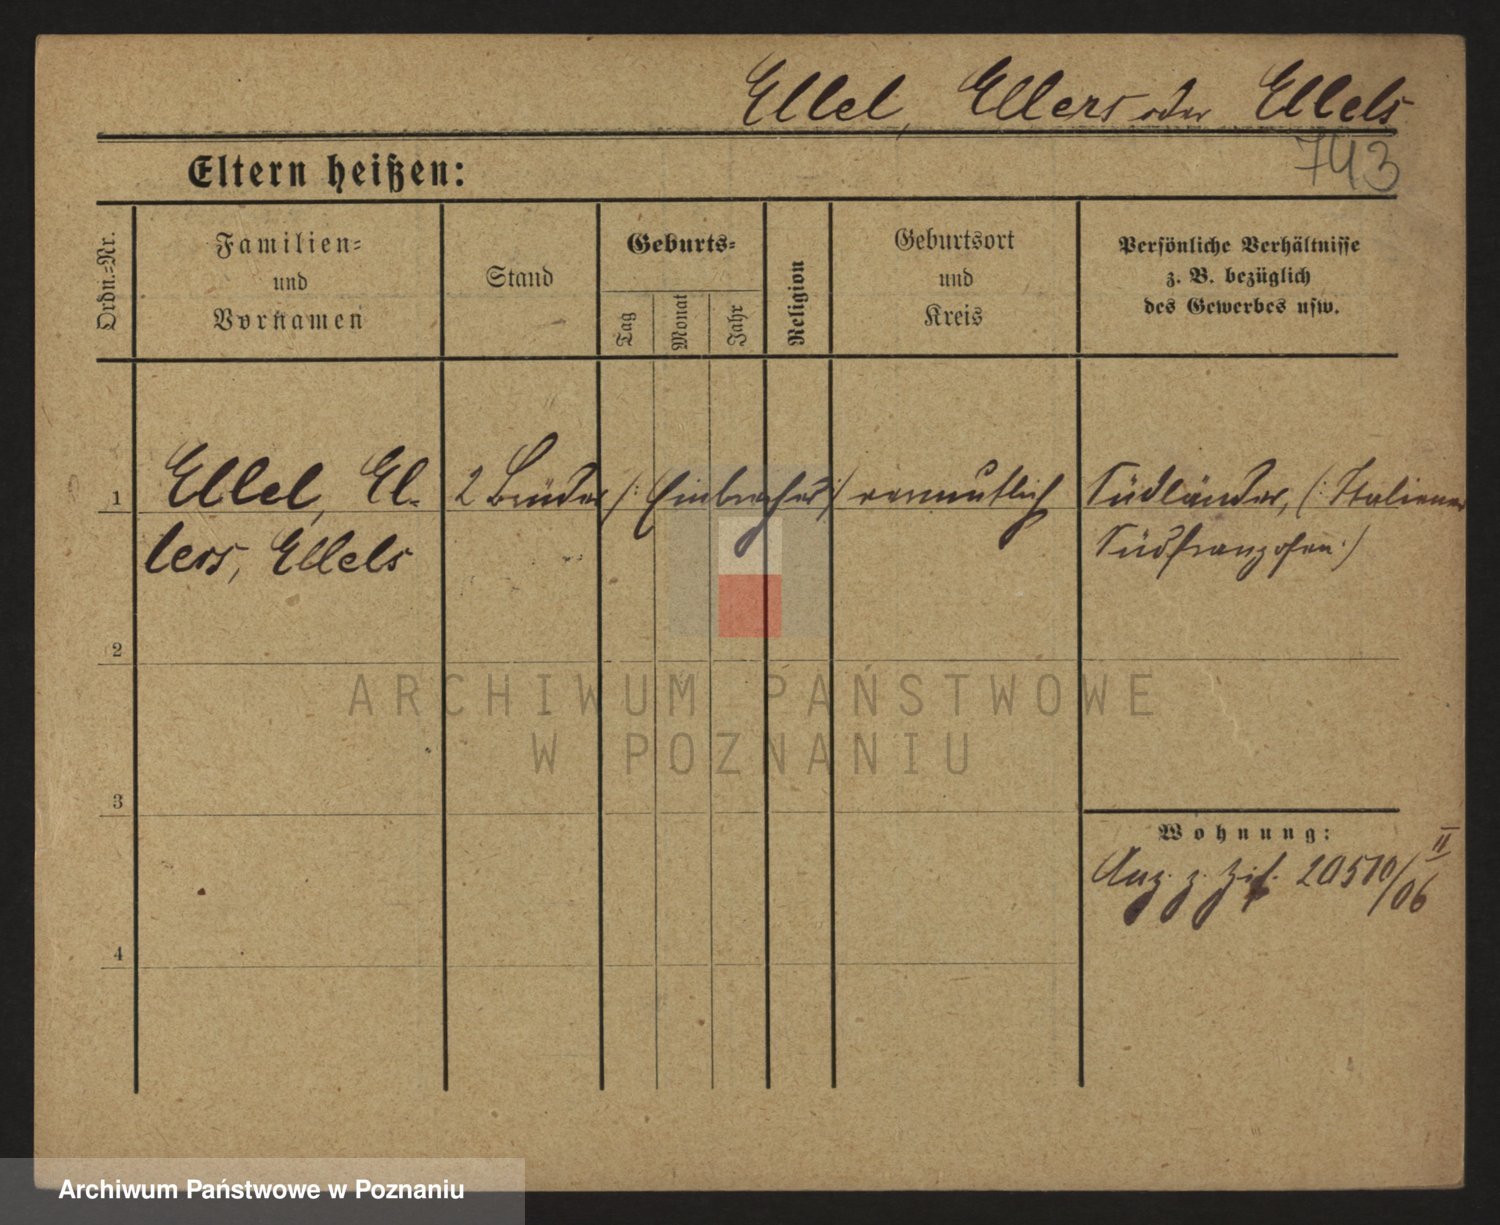 Ellel, Ellers oder Ellels
743
Eltern heißen:
Ordn.-Nr.
Familien-
und
Vornamen
Stand
Geburts-
Tag
Monat
Jahr
Religion
Geburtsort
und
Kreis
Persönliche Verhältnisse
z. B. bezüglich
des Gewerbes usw.
1 Ellel, El- 2 Brüder (: Einbrecher :) vermutlich Südländer, (: Italiener
lers, Ellels Südfranzosen :)
2
ARCHIWUM PAŃSTWOWE
W POZNANIU
3
Wohnung:
Anz. z. Zif. 20510/06 II
4
Archiwum Państwowe w Poznaniu